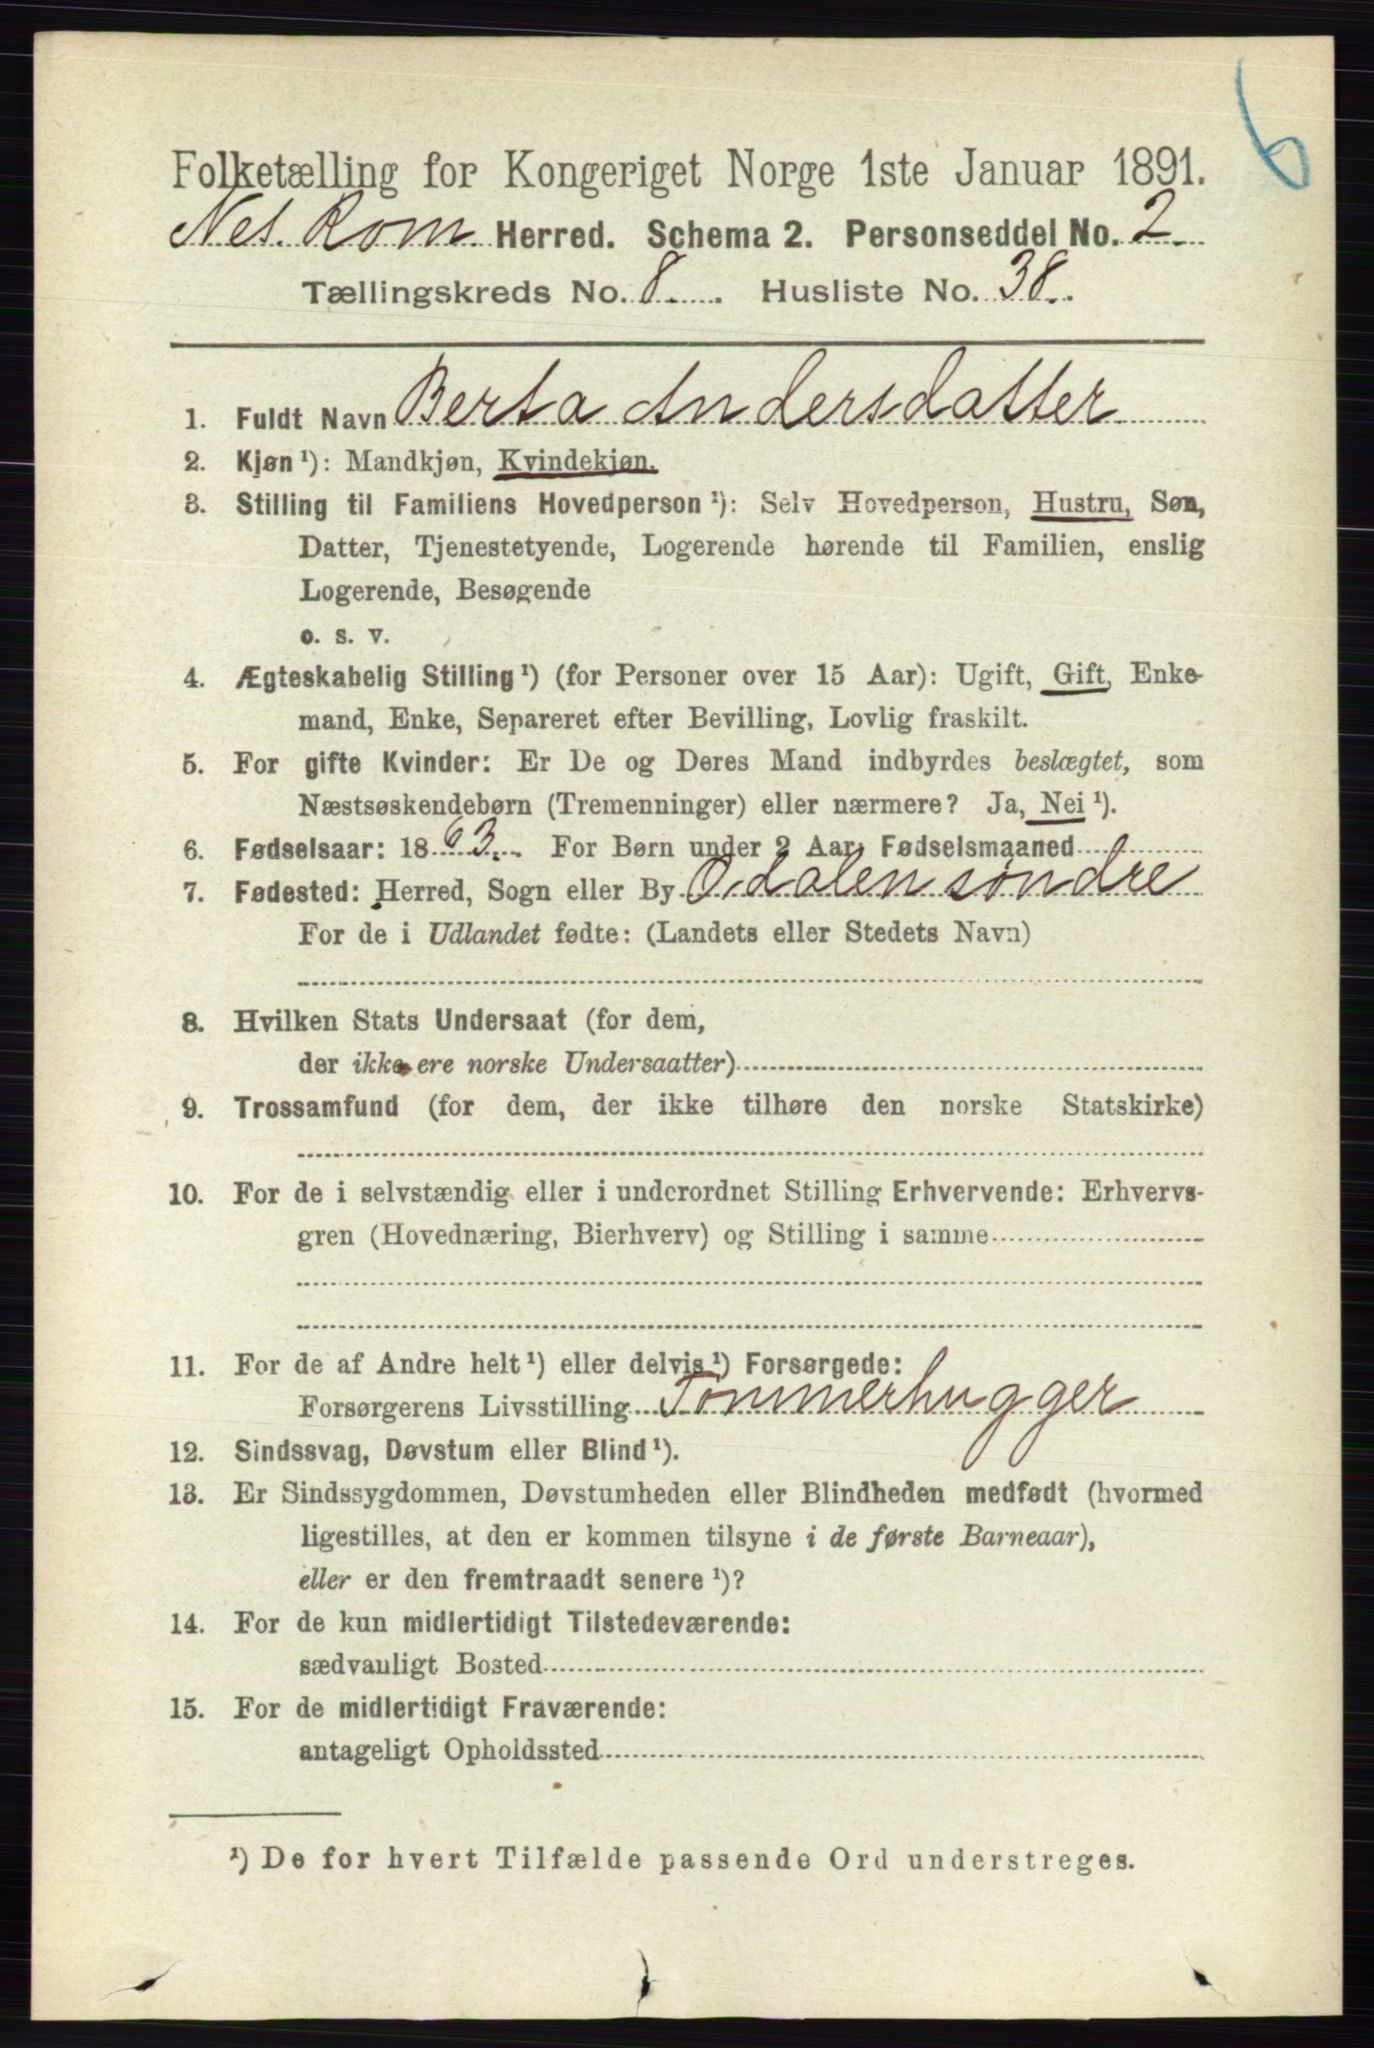 6
Folketælling for Kongeriget Norge 1ste Januar 1891.
Nes. Rom. Herred. Schema 2. Personseddel No. 2.
Tællingskreds No. 8. Husliste No. 38.
1. Fuldt Navn Berta Andersdatter.
2. Kjøn ¹): Mandkjøn, Kvindekjøn.
3. Stilling til Familiens Hovedperson ¹): Selv Hovedperson, Hustru, Søn,
Datter, Tjenestetyende, Logerende hørende til Familien, enslig
Logerende, Besøgende
o. s. v.
4. Ægteskabelig Stilling ¹) (for Personer over 15 Aar): Ugift, Gift, Enke-
mand, Enke, Separeret efter Bevilling, Lovlig fraskilt.
5. For gifte Kvinder: Er De og Deres Mand indbyrdes beslægtet, som
Næstsøskendebørn (Tremenninger) eller nærmere? Ja, Nei ¹).
6. Fødselsaar: 1863. For Børn under 2 Aar: Fødselsmaaned
7. Fødested: Herred, Sogn eller By Odalen søndre
For de i Udlandet fødte: (Landets eller Stedets Navn)
8. Hvilken Stats Undersaat (for dem,
der ikke ere norske Undersaatter)
9. Trossamfund (for dem, der ikke tilhøre den norske Statskirke)
10. For de i selvstændig eller i underordnet Stilling Erhvervende: Erhvervs-
gren (Hovednæring, Bierhverv) og Stilling i samme
11. For de af Andre helt ¹) eller delvis ¹) Forsørgede:
Forsørgerens Livsstilling Tømmerhugger
12. Sindssvag, Døvstum eller Blind ¹).
13. Er Sindssygdommen, Døvstumheden eller Blindheden medfødt (hvormed
ligestilles, at den er kommen tilsyne i de første Barneaar),
eller er den fremtraadt senere ¹)?
14. For de kun midlertidigt Tilstedeværende:
sædvanligt Bosted
15. For de midlertidigt Fraværende:
antageligt Opholdssted
¹) De for hvert Tilfælde passende Ord understreges.